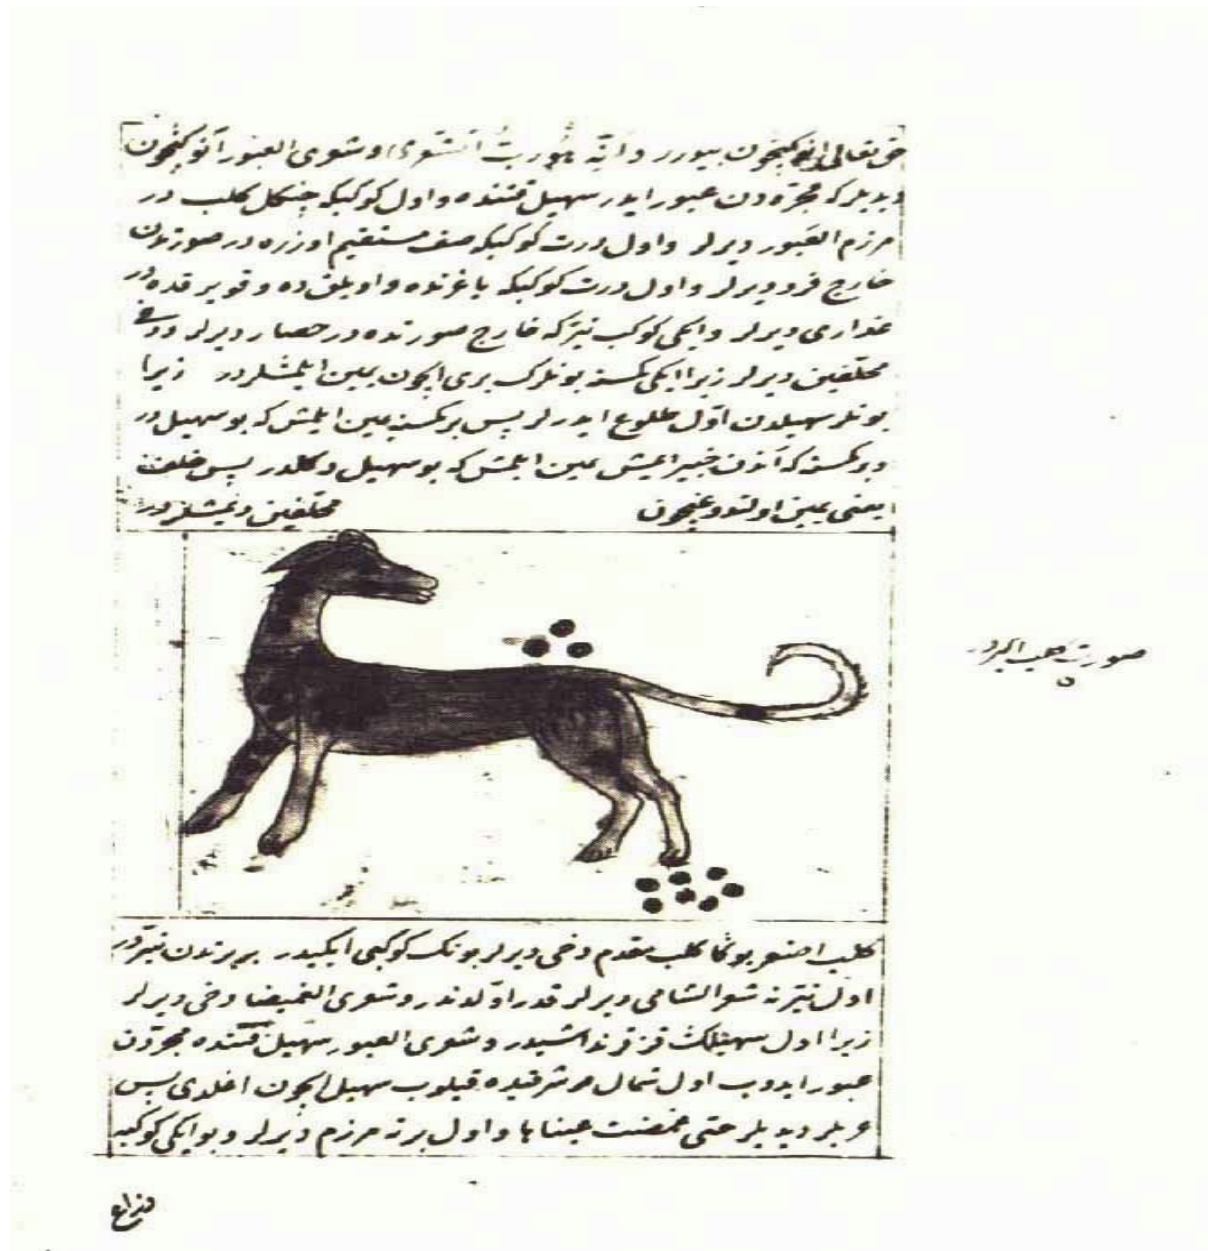 حق تعالی انوكیچون بیورر و انه هو رب الشعری و شعری العبور آنوكیچون
دیدیلر كه مجره دن عبور ایدر سهیل قتنده و اول كوكبكه چنكال كلب در
مرزم العبور دیرلر و اول درت كوكبكه صف مستقیم اوزره در صورتدن
خارج فرود دیرلر و اول درت كوكبكه باغرنده و اویلق ده و قویرقده در
عذاری دیرلر و ایكی كوكب نیر كه خارج صورتده در حضار دیرلر و دخی
محلفین دیرلر زیرا ایكی كسنه بونلرك بری ایچون یمین ایلمشلردر زیرا
بونلر سهیلدن اول طلوع ایدرلر پس بر كسنه یمین ایلمش كه بو سهیل در
و بر كسنه كه آندن خبیر ایمش یمین ایلمش كه بو سهیل دكلدر پس حلف
یعنی یمین اولندوغیچون محلفین دیمشلردر
صورت كلب اكبردر
كلب اصغر بوكا كلب مقدم دخی دیرلر بونك كوكبی ایكیدر بر برندن نیردر
اول نیرنه شعر الشامی دیرلر قدر اولدندر و شعری الغمیضا دخی دیرلر
زیرا اول سهیلك قز قرنداشیدر و شعری العبور سهیل قتنده مجره دن
عبور ایدوب اول شمال شرقیده قیلوب سهیل ایچون اغلدی پس
عربلر دیدیلر حتی غمضت عیناها و اول برنه مرزم دیرلر و بو ایكی كوكبه
ذراع